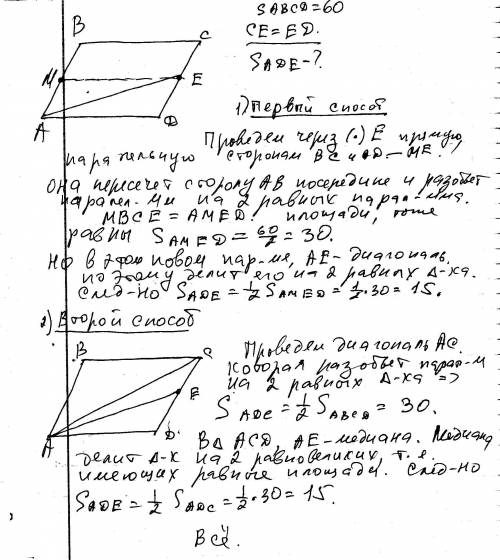 SABCD=60
CE=ED.
SADE-?
B
C
M
E
A
D
1) Первый способ
Проведем через (.) E прямую
параллельную сторонам BC и AD - ME.
Она пересечет сторону AB посередине и разобьет
паралел-мм на 2 равных парал-мма.
MBCE = AMED. площади, тоже
равны SAMED = 60/2 = 30.
Но в этом новом пар-ме, AE-диагональ.
поэтому делит его на 2 равных Δ-ка.
след-но SADE = 1/2 SAMED = 1/2 · 30 = 15.
2) Второй способ
B
C
E
A
D
Проведем диагональ AC.
которая разобьет парал-м
на 2 равных Δ-ка =>
SADC = 1/2 SABCD = 30.
В Δ ACD, AE-медиана. Медиана
делит Δ-к на 2 равновеликих, т.е.
имеющих равные площади. След-но
SADE = 1/2 SADC = 1/2 · 30 = 15.
Всё.